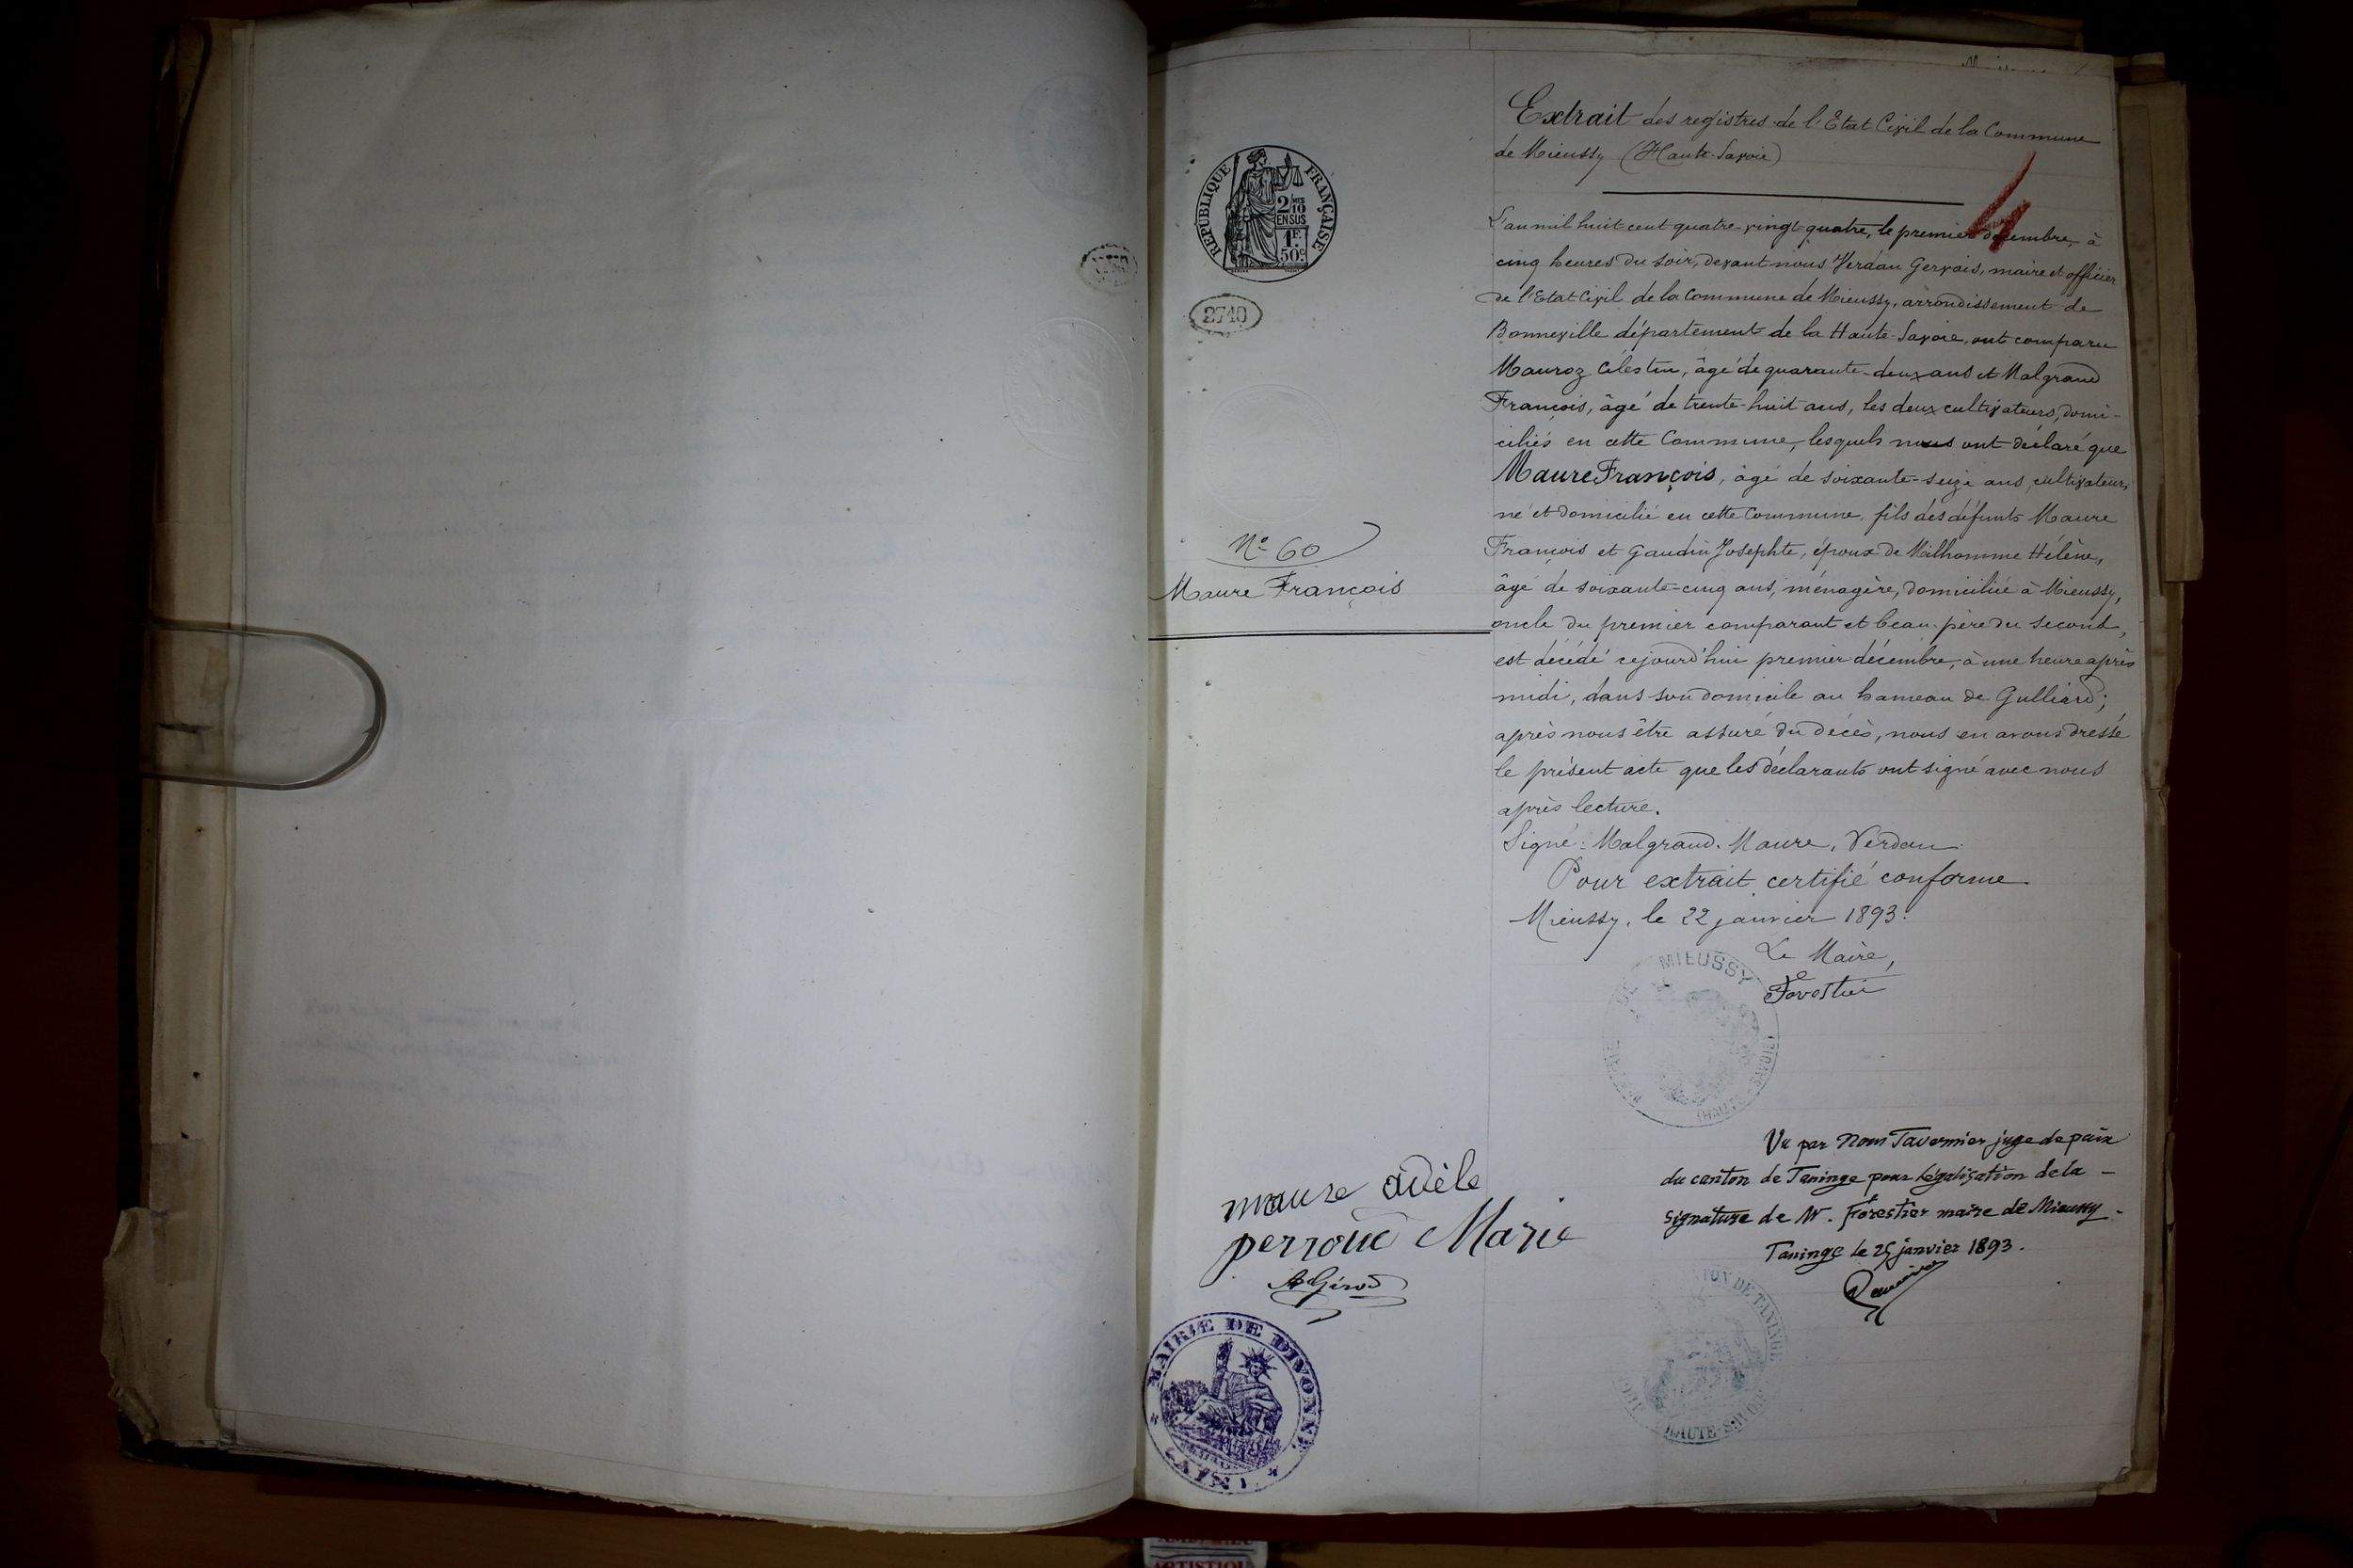 Extrait des registres de l'Etat Civil de la Commune
de Mieussy (Haute-Savoie)
REPUBLIQUE FRANÇAISE
2/10
EN SUS
1F.
50c
2740
4
L'an mil huit cent quatre-vingt-quatre, le premier décembre, à
cinq heures du soir, devant nous Verdan Gervais, maire et officier
de l'Etat Civil de la Commune de Mieussy, arrondissement de
Bonneville département de la Haute-Savoie, ont comparu
Mauroz Célestin, âgé de quarante-deux ans et Malgrand
François, âgé de trente-huit ans, les deux cultivateurs, domi-
ciliés en cette Commune, lesquels nous ont déclaré que
Maure François, âgé de soixante-seize ans, cultivateur,
né et domicilié en cette Commune, fils des défunts Maure
François et Gaudin Josephte, époux de Milhomme Hélène,
âgé de soixante-cinq ans, ménagère, domiciliée à Mieussy,
oncle du premier comparant et beau-père du second,
est décédé cejourd'hui premier décembre, à une heure après
midi, dans son domicile au hameau de Gulliard;
après nous être assuré du décès, nous en avons dressé
le présent acte que les déclarants ont signé avec nous
après lecture.
Signé: Malgrand. Maure, Verdan.
Pour extrait certifié conforme
Mieussy, le 22 janvier 1893.
Le Maire,
Forestier
N° 60
Maure François
DE MIEUSSY
(HAUTE-SAVOIE)
Vu par Nous Tavernier juge de paix
du canton de Taninge pour légalisation de la
signature de Mr. Forestier maire de Mieussy.
Taninge le 25 janvier 1893.
CANTON DE TANINGE
HAUTE-SAVOIE
maure adèle
perroud Marie
Girod
MAIRIE DE DIVONNE
(AIN)
ARTISTIQUE